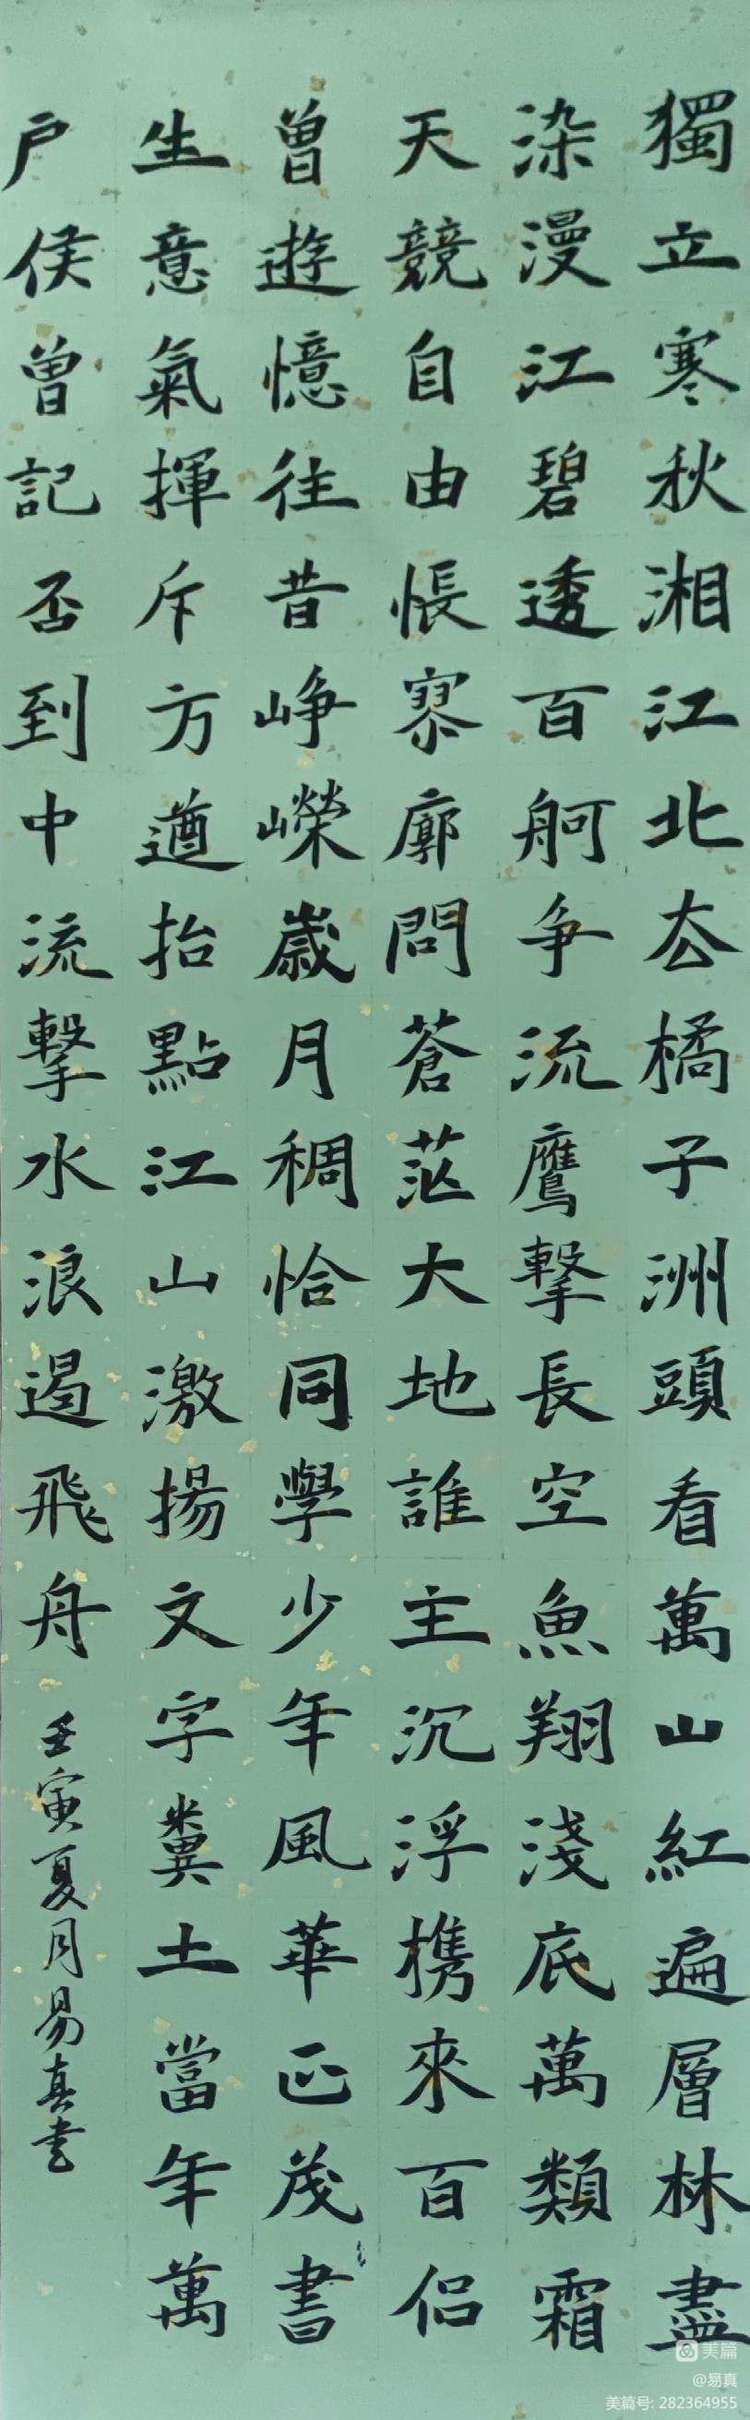 獨立寒秋湘江北去橘子洲頭看萬山紅遍層林盡
染漫江碧透百舸争流鷹擊長空魚翔淺底萬類霜
天競自由悵寥廓問蒼茫大地誰主沉浮携來百侣
曾遊憶往昔崢嶸歲月稠恰同學少年風華正茂書
生意氣揮斥方遒指點江山激揚文字糞土當年萬
户侯曾記否到中流擊水浪遏飛舟
壬寅夏月易真書
美篇
@易真
美篇号: 282364955